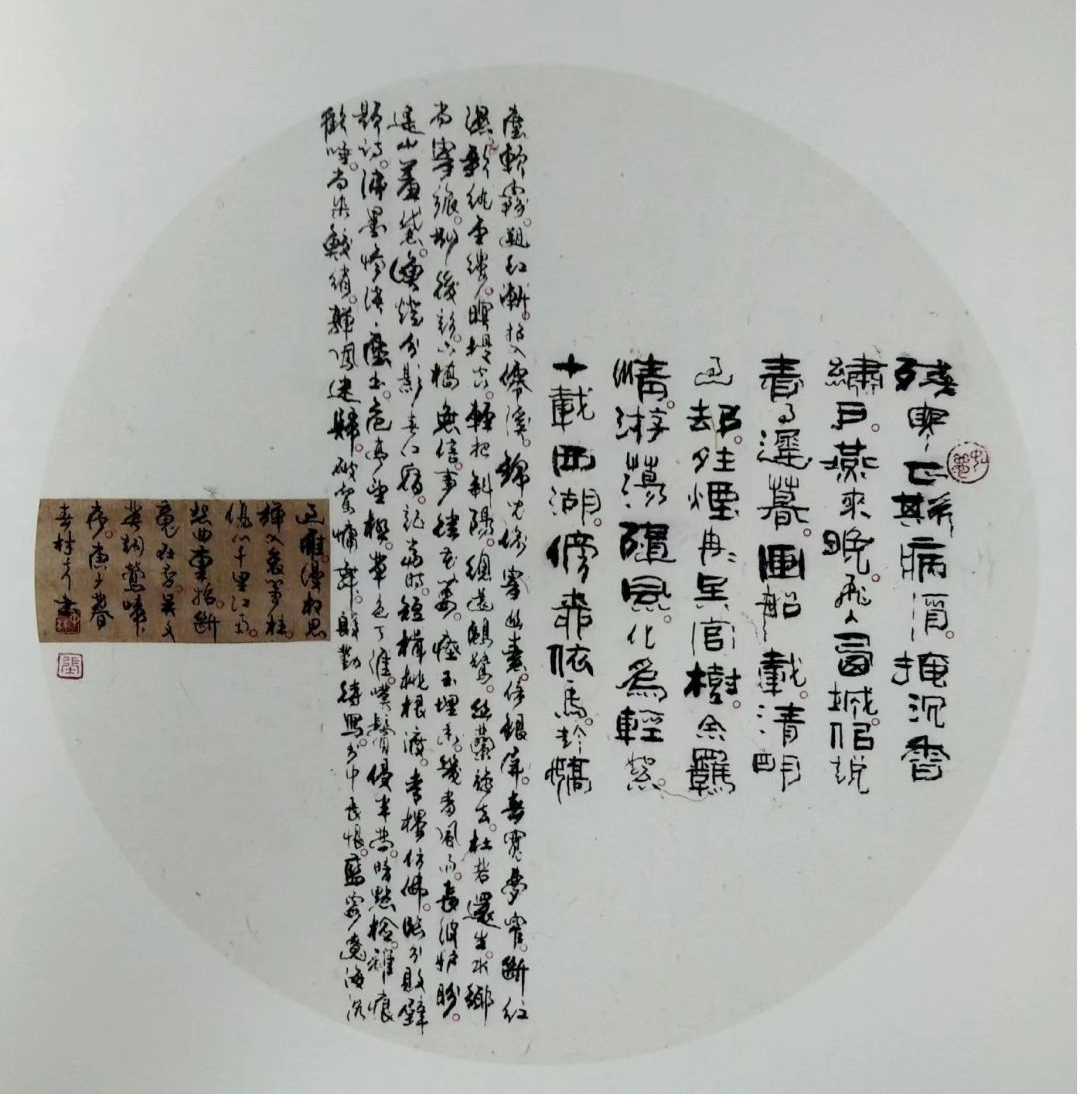 殘寒正欺病酒掩沉香
繡戶燕來晚飛入西城似説
春事遲暮畫船載清明
過却晴煙冉冉吳宮樹念羈
情游蕩隨風化為輕絮
十載西湖傍柳系馬趁嬌
塵軟霧遡紅漸招入僊溪錦兒偷寄幽素倚銀屏春寬夢窄斷紅
濕歌紈金縷暝堤空輕把斜陽總還鷗鷺幽蘭旋老杜若還生水鄉
尚寄旅別後訪六橋無信事往花萎瘞玉埋香幾番風雨長波妒盼
遙山羞黛漁燈分影春江宿記當時短楫桃根渡青樓仿佛臨分敗壁
題詩淚墨慘淡塵土危亭望極草色天涯嘆鬢侵半苧暗點檢離痕
歡唾尚染鮫綃嚲鳳迷歸破鸞慵舞殷勤待寫書中長恨藍霞遼海沉
過雁漫相思
彈入哀箏柱
傷心千里江南
怨曲重招斷
魂在否吳文
英詞鶯啼
序庚子春
春林書